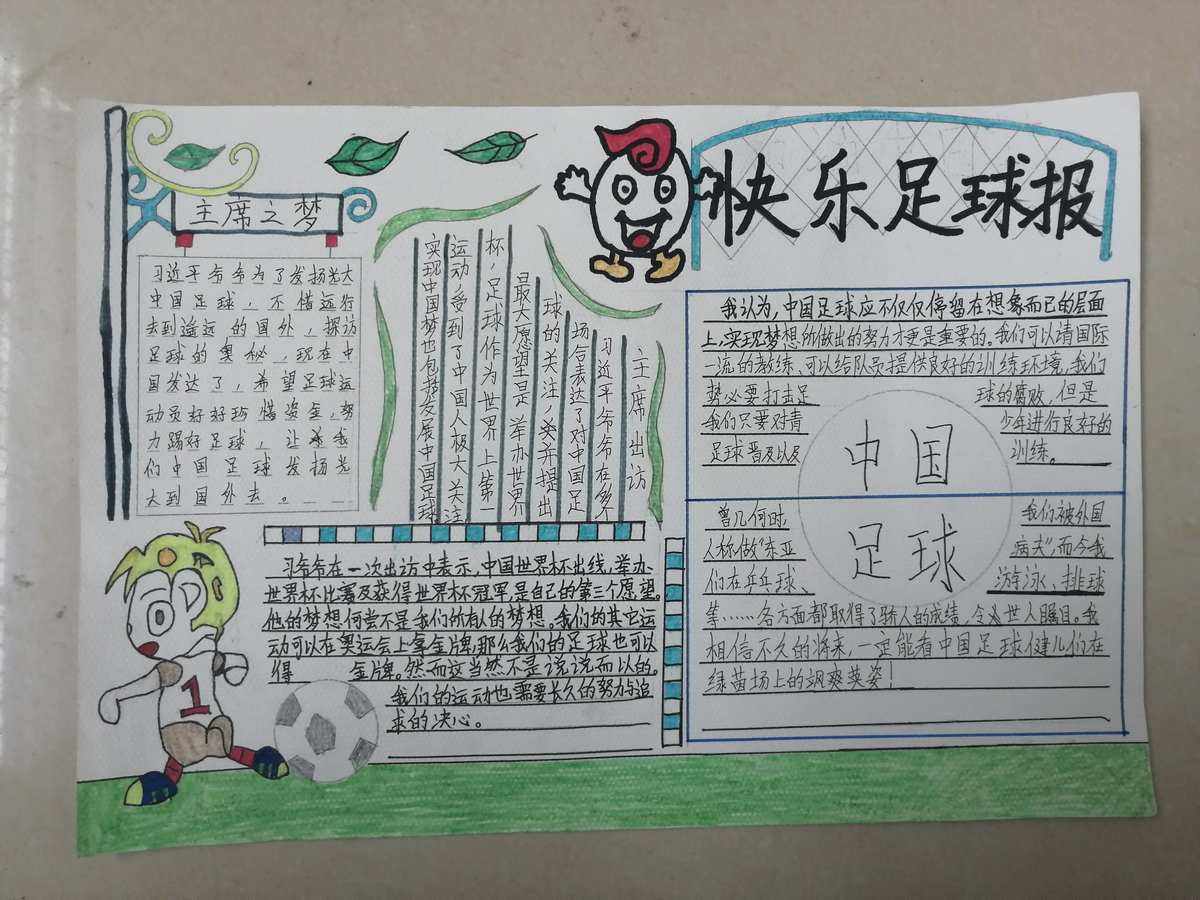 快乐足球报
主席之梦
习近平爷爷为了发扬光大
中国足球，不惜远行
去到遥远的国外，探访
足球的奥秘，现在中
国发达了，希望足球运
动员好好珍惜资金，努
力踢好足球，让我
们中国足球发扬光
大到国外去。
主席出访
习近平爷爷在多个
场合表达了对中国足
球的关注，并提出
最大愿望是举办世界
杯，足球作为世界上第一
运动，受到了中国人极大关注
实现中国梦也包括发展中国足球
习爷爷在一次出访中表示，中国世界杯出线，举办
世界杯比赛及获得世界杯冠军是自己的第三个愿望。
他的梦想何尝不是我们所有人的梦想。我们的其它运
动可以在奥运会上拿金牌，那么我们的足球也可以
得 金牌。然而这当然不是说说而以的。
我们的运动也需要长久的努力与追
求的决心。
我认为，中国足球应不仅仅停留在想象而已的层面
上，实现梦想所做出的努力才更是重要的。我们可以请国际
一流的教练、可以给队员提供良好的训练环境，我们
势必要打击足 球的腐败，但是
我们只要对青 少年进行良好的
足球普及以及 训练。
中国
足球
曾几何时 我们被外国
人称做"东亚 病夫"而今我
们在乒乓球、 游泳、排球
等……各方面都取得了骄人的成绩，令世人瞩目。我
相信不久的将来，一定能看中国足球健儿们在
绿茵场上的飒爽英姿！
1